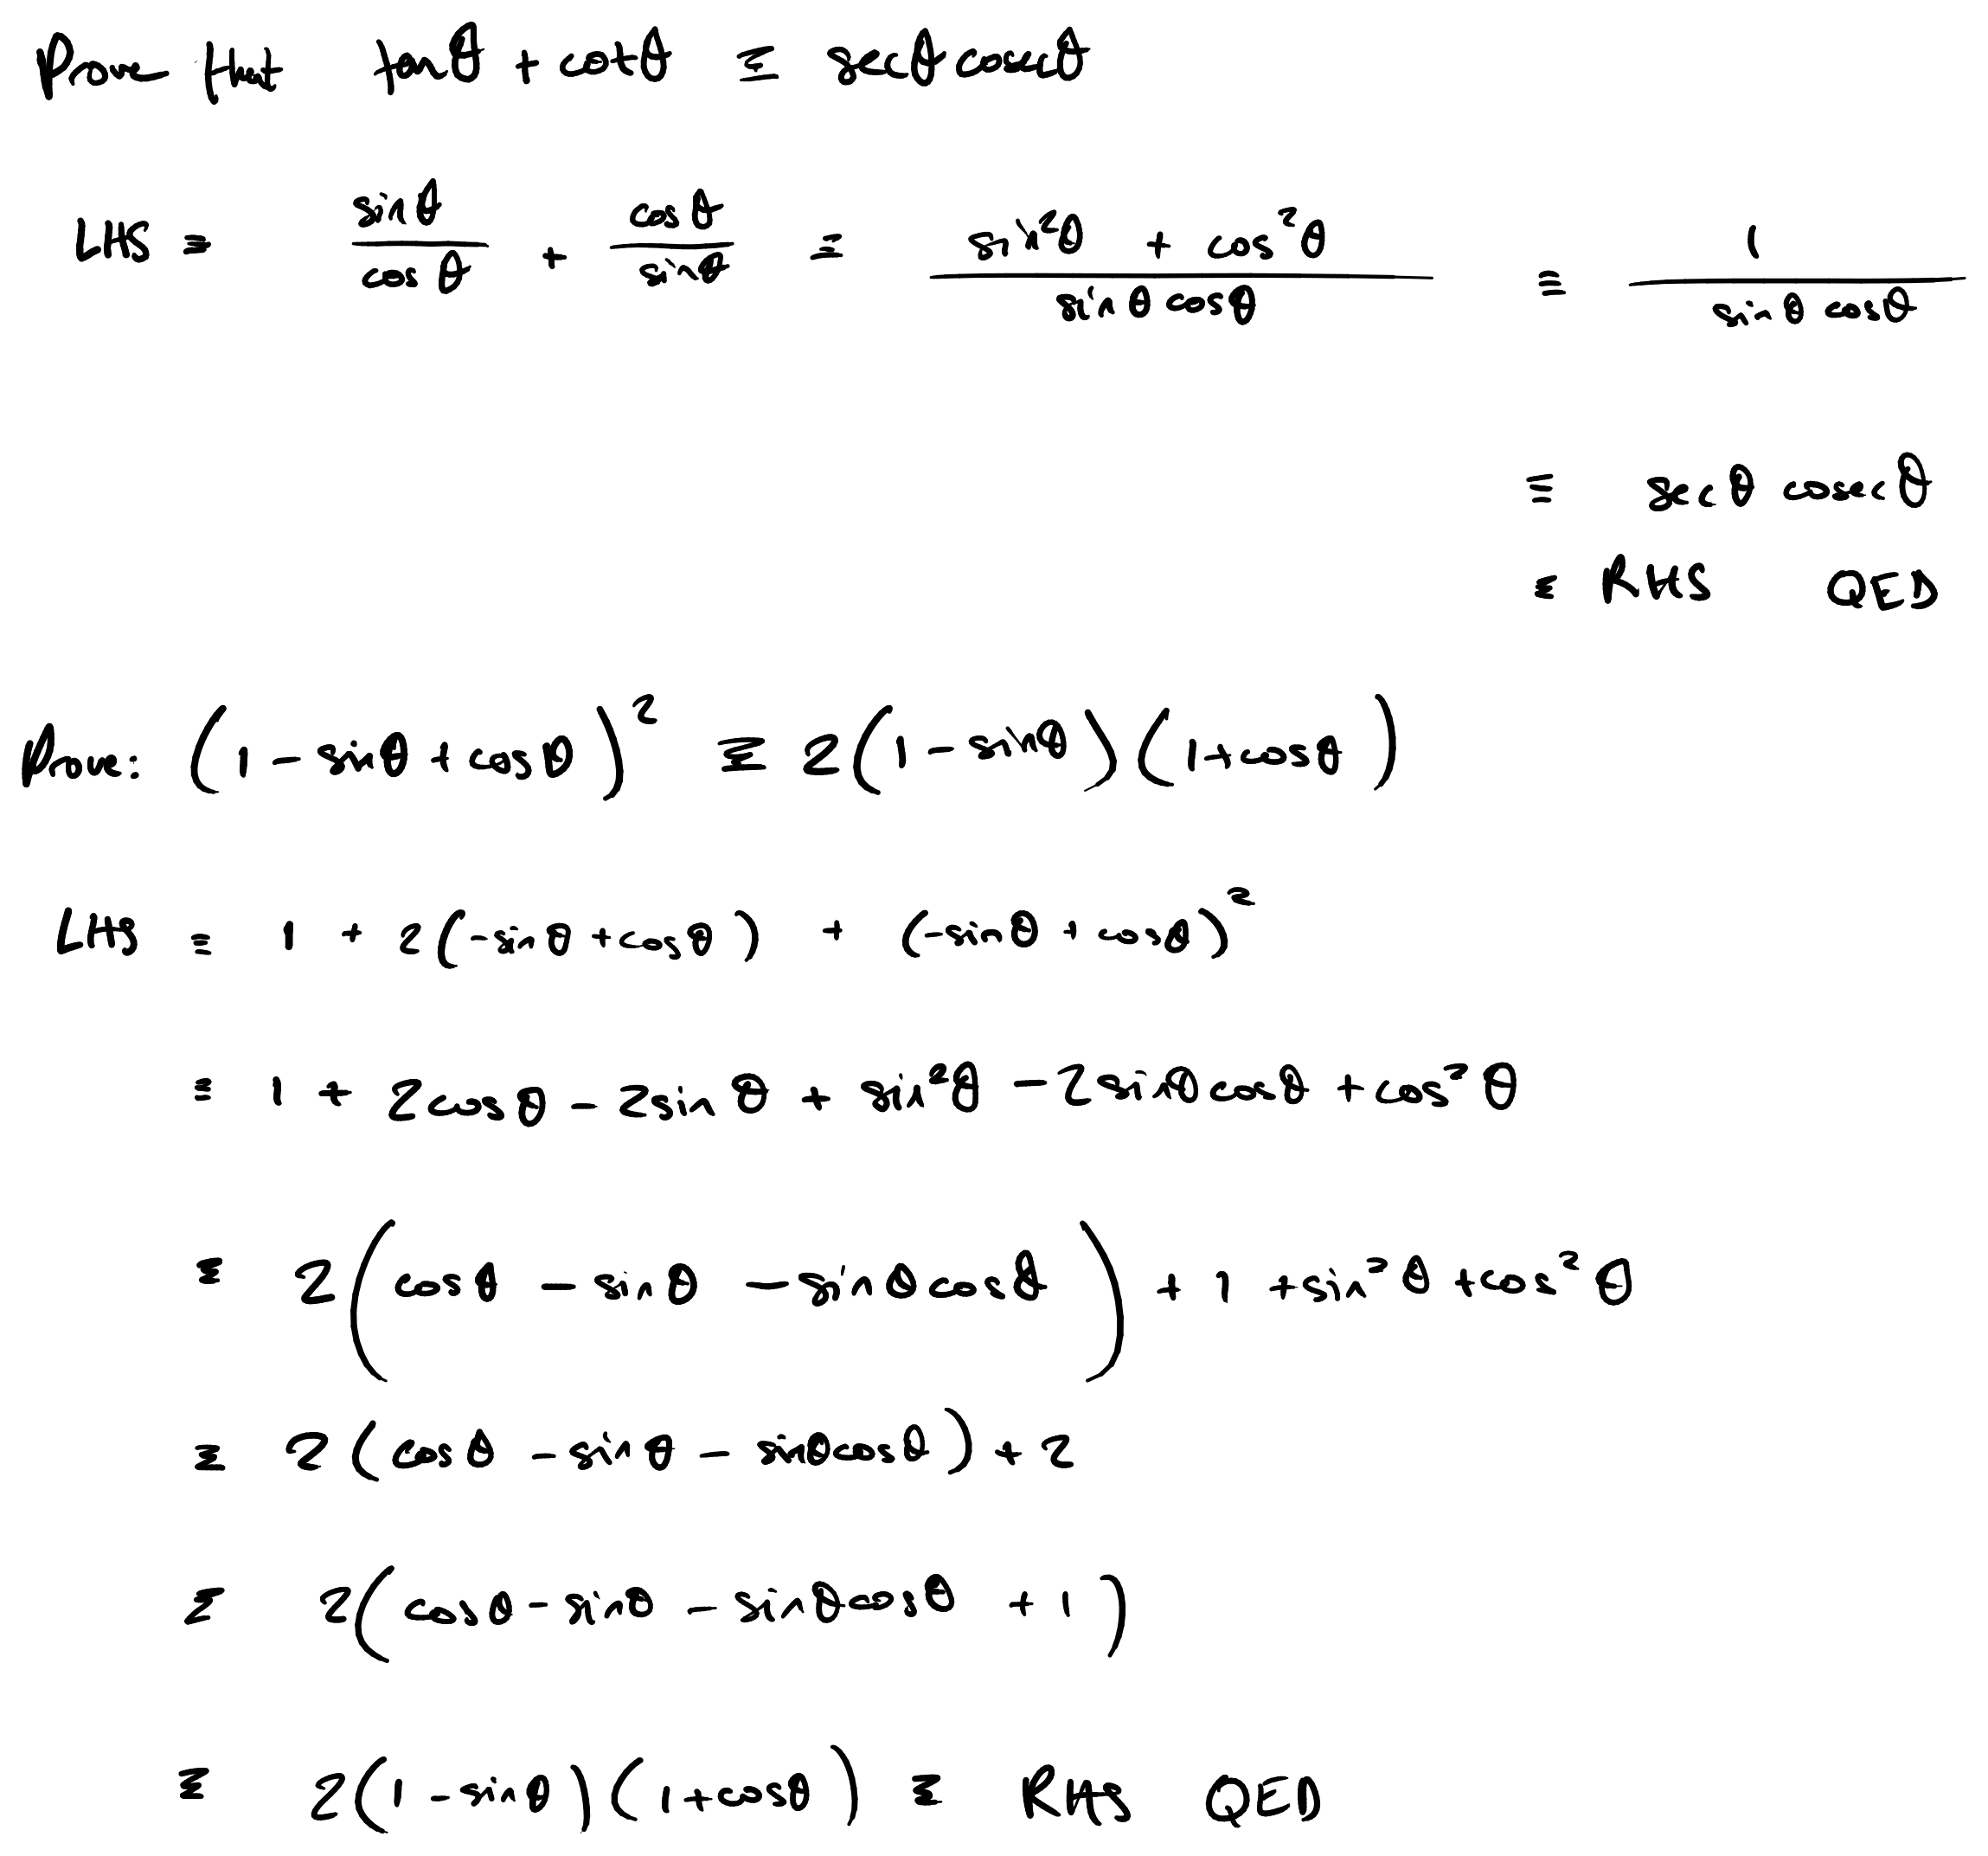 Prove that tanθ + cotθ ≡ secθ cosecθ
LHS ≡ sinθ/cosθ + cosθ/sinθ ≡ (sin²θ + cos²θ)/(sinθ cosθ) ≡ 1/(sinθ cosθ)
≡ secθ cosecθ
≡ RHS QED
Prove: (1 - sinθ + cosθ)² ≡ 2(1 - sinθ)(1 + cosθ)
LHS ≡ 1 + 2(-sinθ + cosθ) + (-sinθ + cosθ)²
≡ 1 + 2cosθ - 2sinθ + sin²θ - 2sinθcosθ + cos²θ
≡ 2(cosθ - sinθ - sinθcosθ) + 1 + sin²θ + cos²θ
≡ 2(cosθ - sinθ - sinθcosθ) + 2
≡ 2(cosθ - sinθ - sinθcosθ + 1)
≡ 2(1 - sinθ)(1 + cosθ) ≡ RHS QED